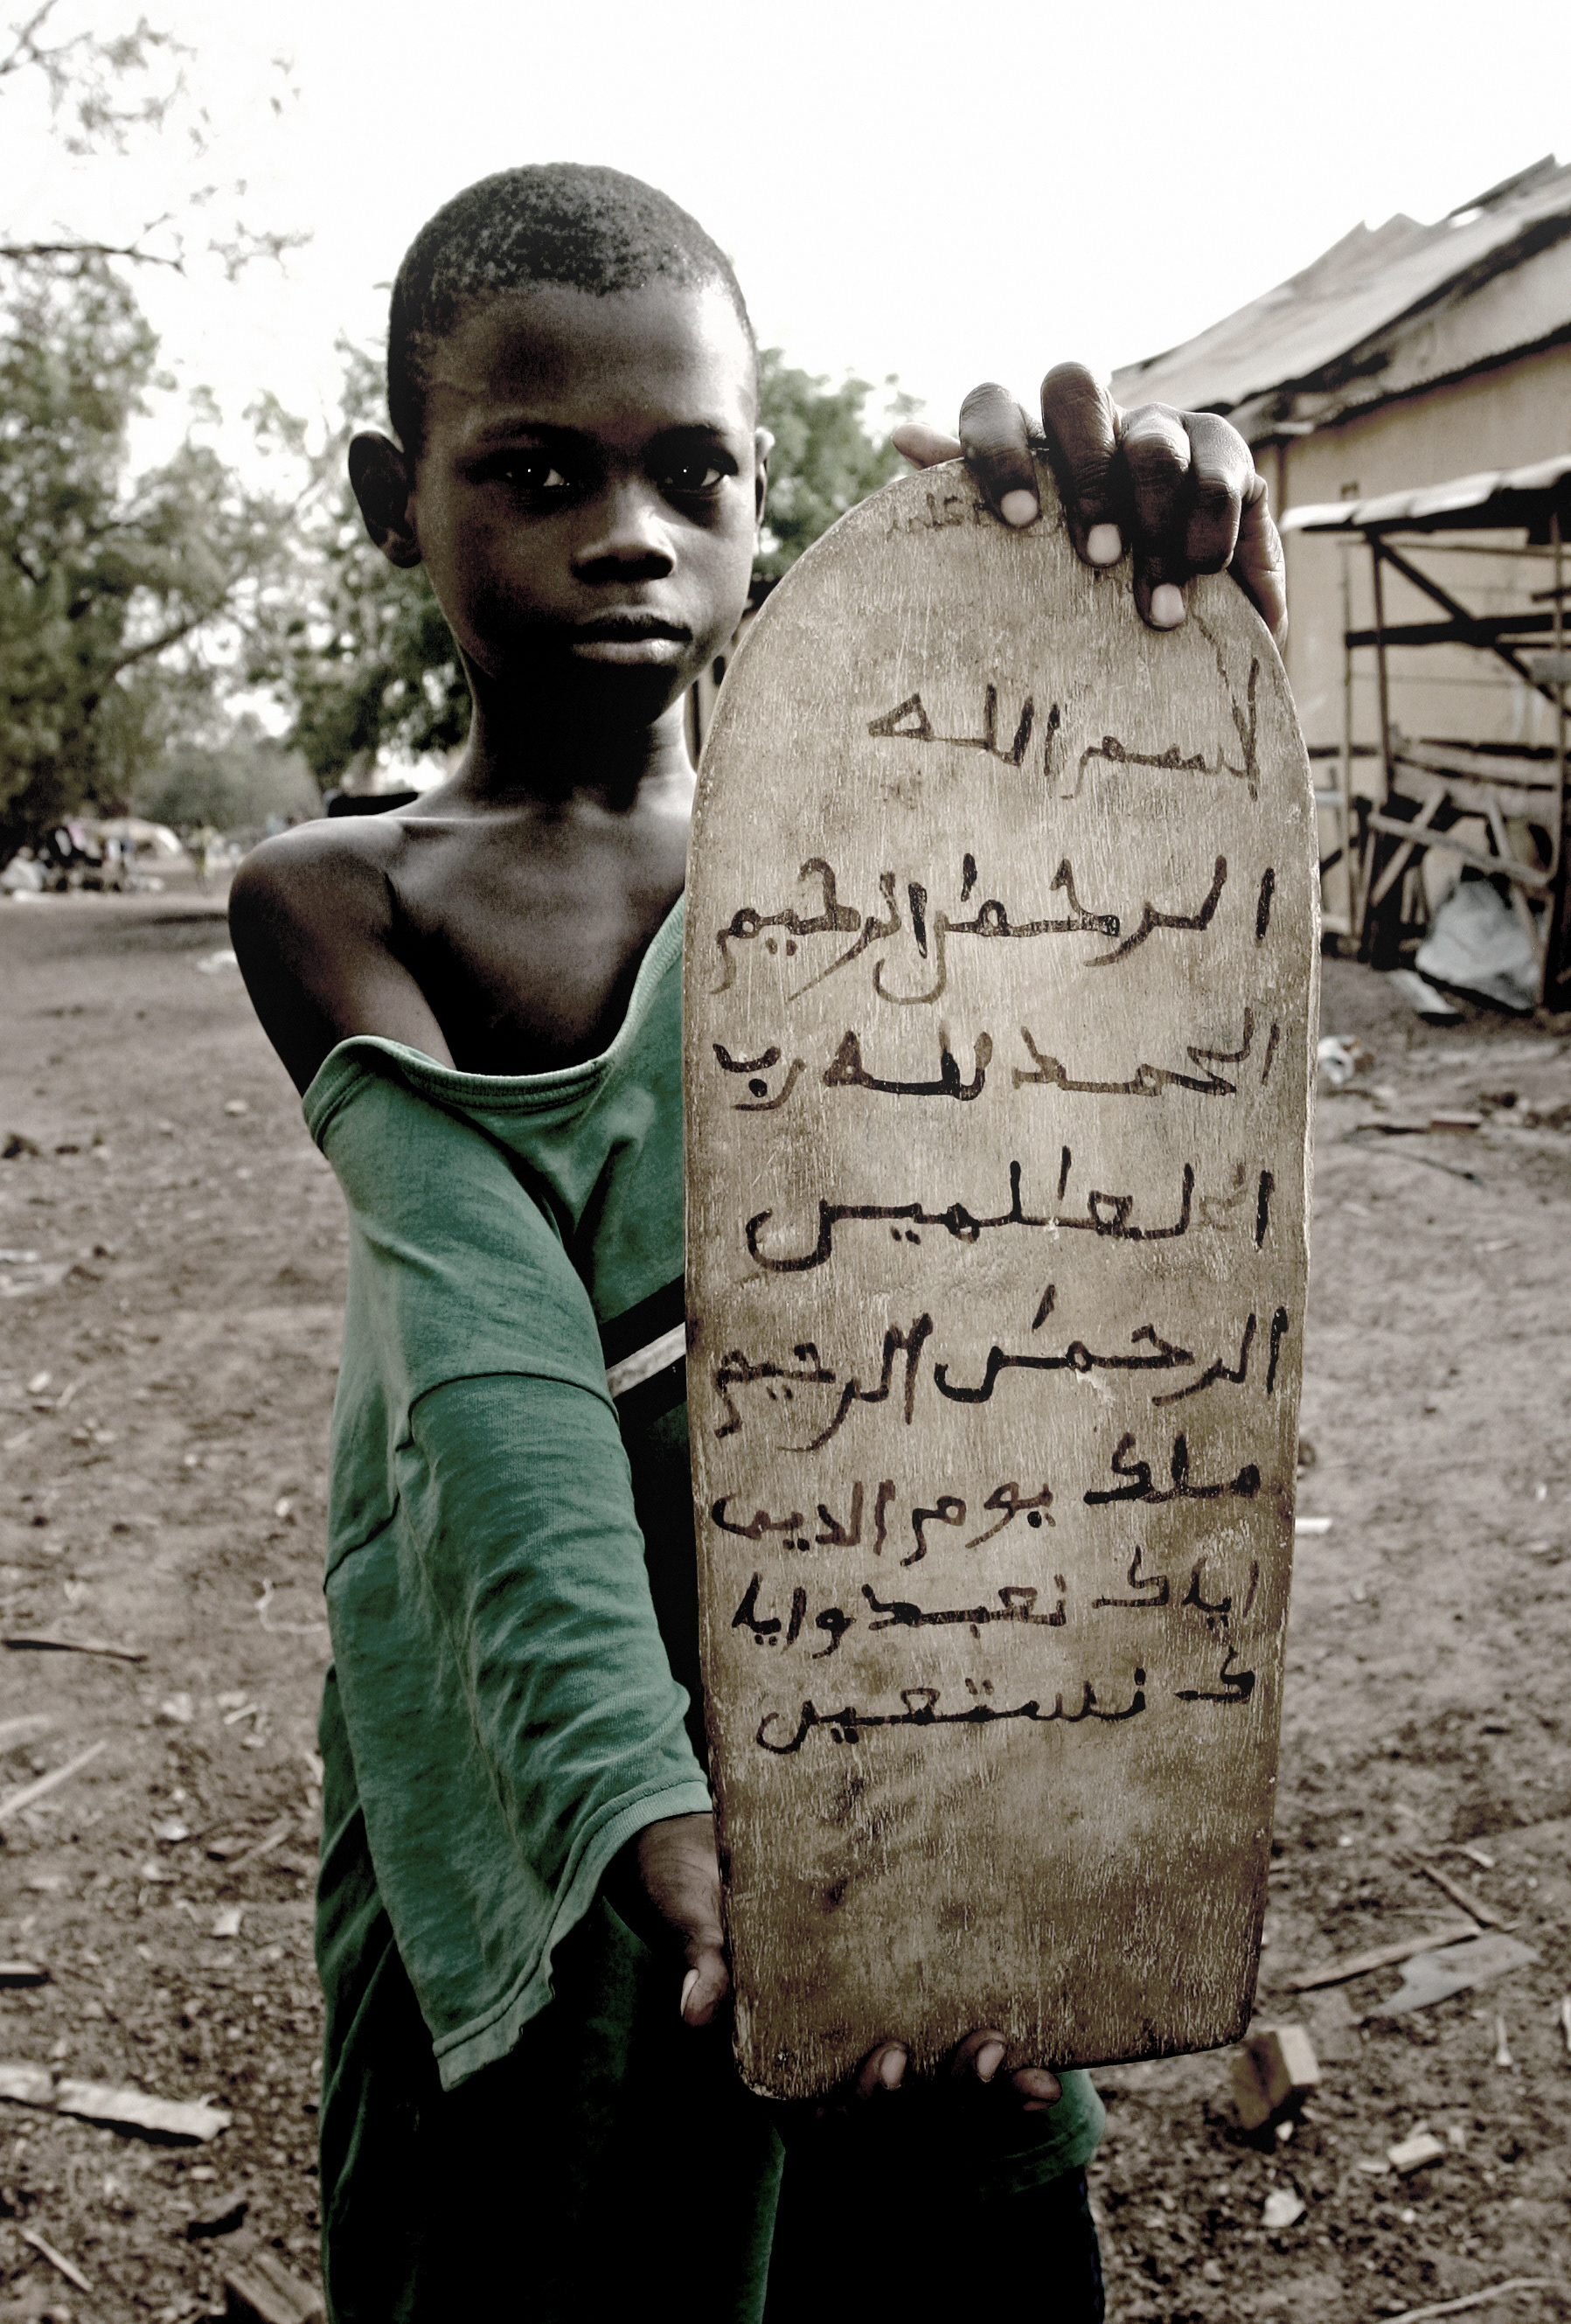 بسم الله
الرحمٰن الرحيم
الحمد لله رب
العٰلمين
الرحمٰن الرحيم
ملك يوم الدين
اياك نعبد وايا
ك نستعين